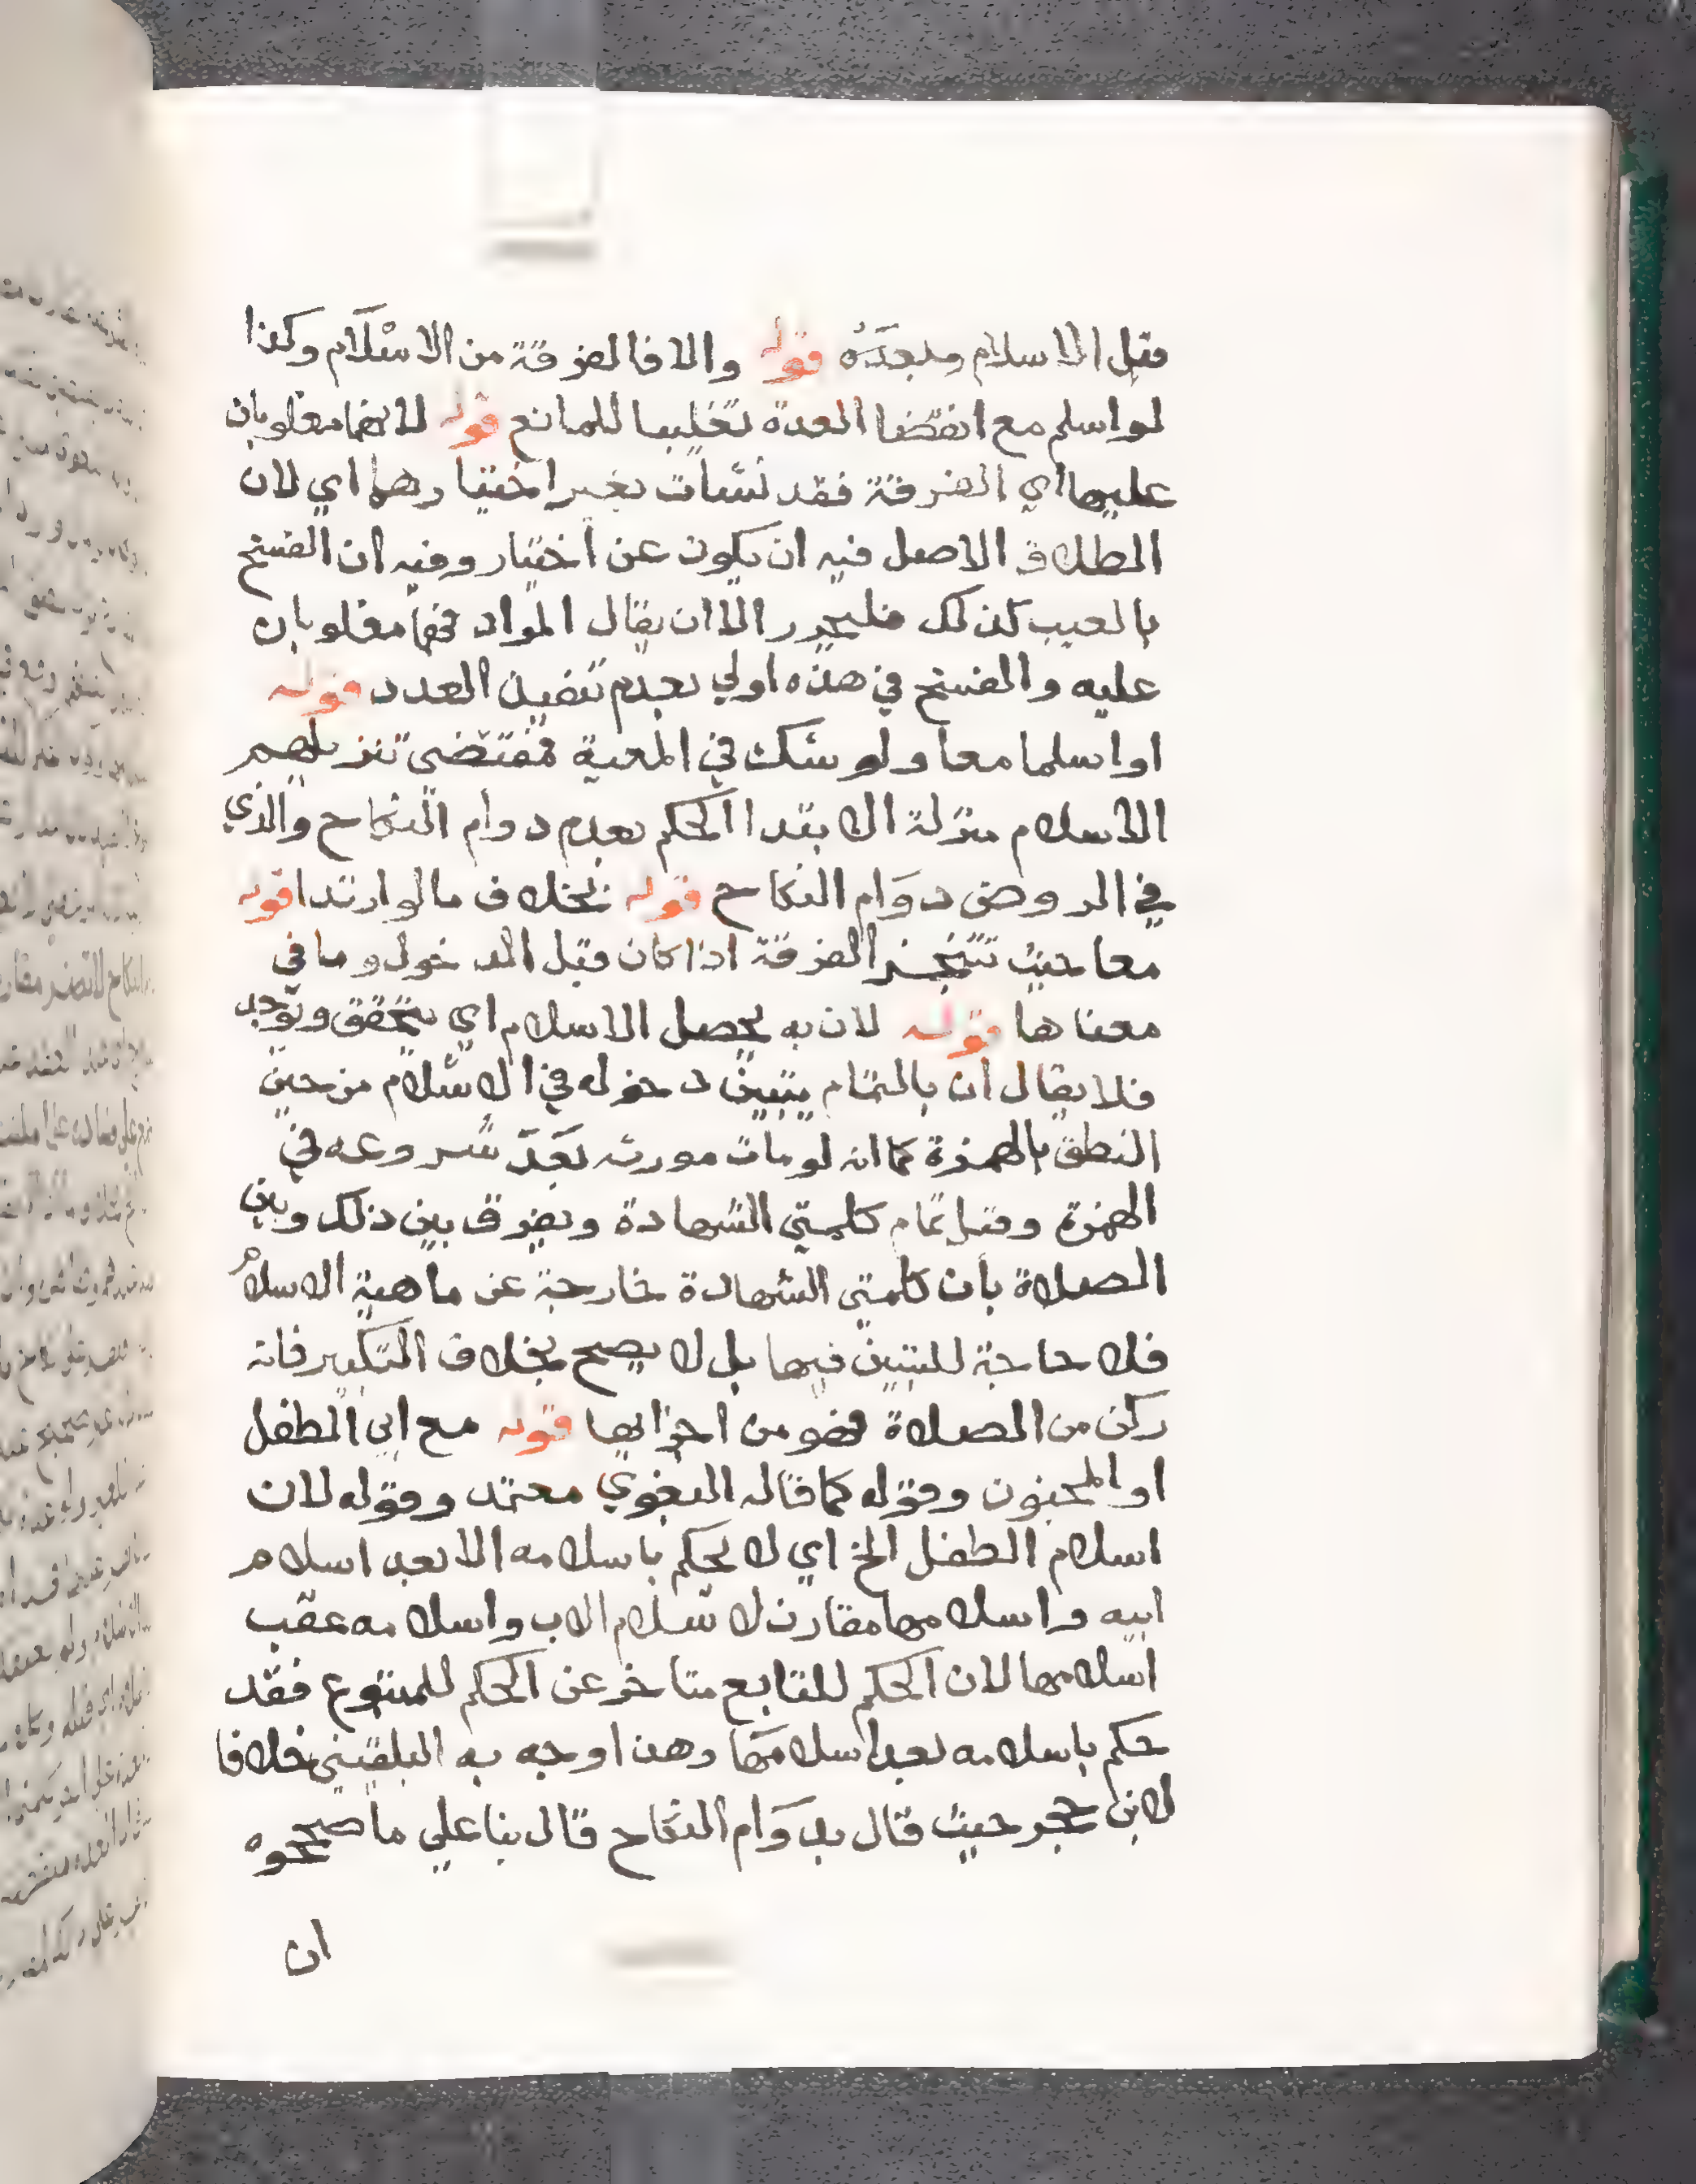 قبل الاسلام وبعده قوله والا فالفرقة من الاسلام وكذا
لو اسلم مع انقضا العدة تغليبا للمانع قوله لانهما مغلوبان
عليها اي الفرقة فقد نشات بغير اختيارهما اي لان
الطلاق الاصل فيه ان يكون عن اختيار وفيه ان الفسخ
بالعيب كذلك فليحرر الا ان يقال المراد فهما مغلوبان
عليه والفسخ في هذه اولي بعدم تنقيص العدد قوله
او اسلما معا ولو شك في المعية فمقتضى تنزيلهم
الاسلام منزلة الابتدا الحكم بعدم دوام النكاح والذي
في الروض دوام النكاح قوله بخلاف ما لو ارتدا قوله
معا حيث تتنجز الفرقة اذا كان قبل الدخول وما في
معناها قوله لان به يحصل الاسلام اي يتحقق ويوجد
فلا يقال ان بالتمام يتبين دخوله في الاسلام من حين
النطق بالهمزة كما انه لو مات مورثه بعد شروعه في
الهمزة وقبل تمام كلمتي الشهادة ويفرق بين ذلك وبين
الصلاة بأن كلمتي الشهادة خارجة عن ماهية الاسلام
فلا حاجة للتبين فيها بل لا يصح بخلاف التكبير فانه
ركن من الصلاة فهو من اجزايها قوله مع ابي الطفل
او المجنون وقوله كما قاله البغوي معتمد وقوله لان
اسلام الطفل الخ اي لا يحكم باسلامه الا بعد اسلام
ابيه واسلامها مقارن لاسلام الاب واسلامه عقب
اسلامها لان الحكم للتابع متاخر عن الحكم للمتبوع فقد
حكم باسلامه بعد اسلامها وهذا وجه به البلقيني خلافا
لابن حجر حيث قال بدوام النكاح قال بنا علي ما صححوه
ان